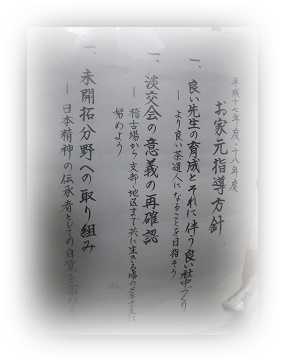 平成十七年度・十八年度
お家元指導方針
一、良い先生の育成とそれに伴う良い社中づくり
― より良い茶道人になることを目指そう
一、淡交会の意義の再確認
― 稽古場から支部・地区まで共に生きる場の
努めよう
一、未開拓分野への取り組み
― 日本精神の伝承者としての自覚を